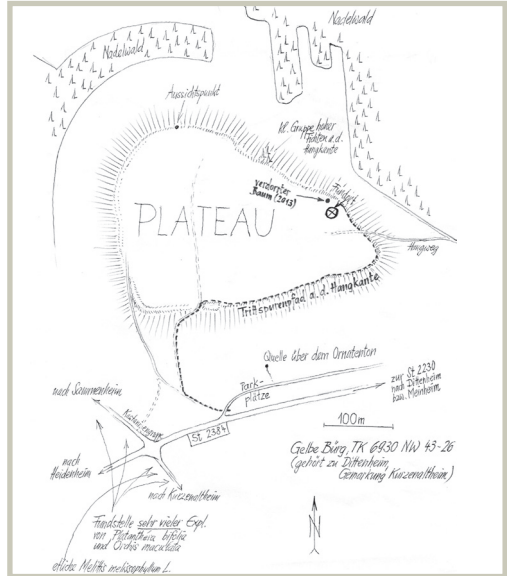 Nadelwald
Nadelwald
Aussichtspunkt
kl. Gruppe hoher
Fichten a.d.
Hangkante
verdorrter
Baum (2013)
Fundort
PLATEAU
Hangweg
Trittspurenpfad a.d. Hangkante
Quelle über dem Ornatenton
Park-
plätze
zur St 2230
nach Dittenheim
bzw. Meinheim
nach Sammenheim
St 2384
100m
nach
Heidenheim
nach Kurzenaltheim
Gelbe Bürg, TK 6930 NW 43-26
(gehört zu Dittenheim,
Gemarkung Kurzenaltheim)
N
Fundstelle sehr vieler Expl.
von Platanthera bifolia
und Orchis maculata
etliche Melittis melissophyllum L.